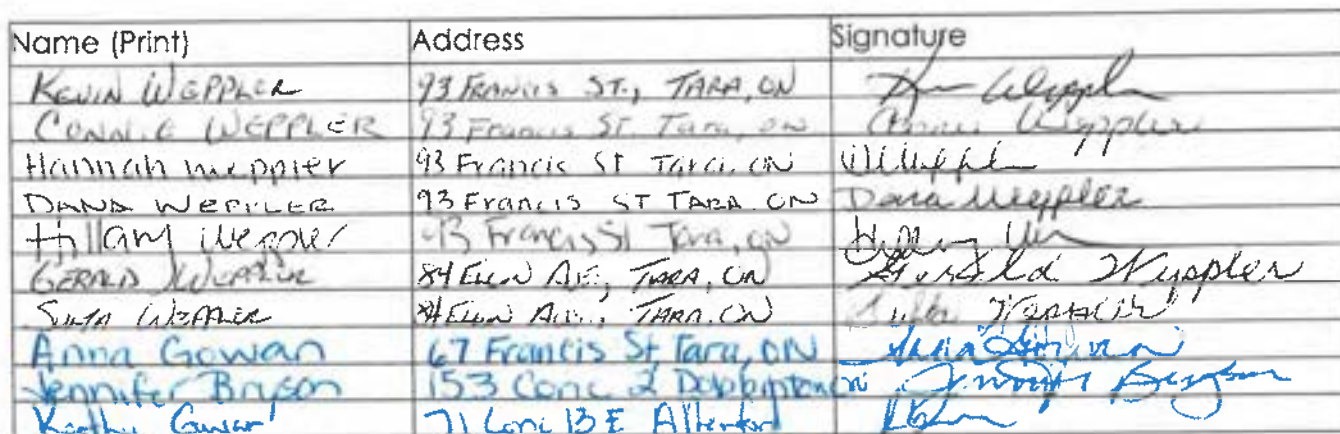 Name (Print) Address Signature
KEVIN WEPPLER 93 FRANCIS ST., TARA, ON Weppler
CONNIE WEPPLER 93 Francis St. Tara, ON Connie Weppler
Hannah Weppler 93 Francis St Tara, ON
DANA WEPPLER 93 Francis ST TARA ON Dana Weppler
Hillary Weppler 93 Francis St Tara, ON Hillary
GERALD WEPPLER 84 AVE, TARA, ON Gerald Weppler
WEPPLER 84 AVE., TARA, ON Weppler
Anna Gowan 67 Francis St, Tara, ON Anna Gowan
Jennifer Bryson 153 Conc 2 Dobbinton Jennifer Bryson
Kathy Gowan 71 Conc 13 E Allenford